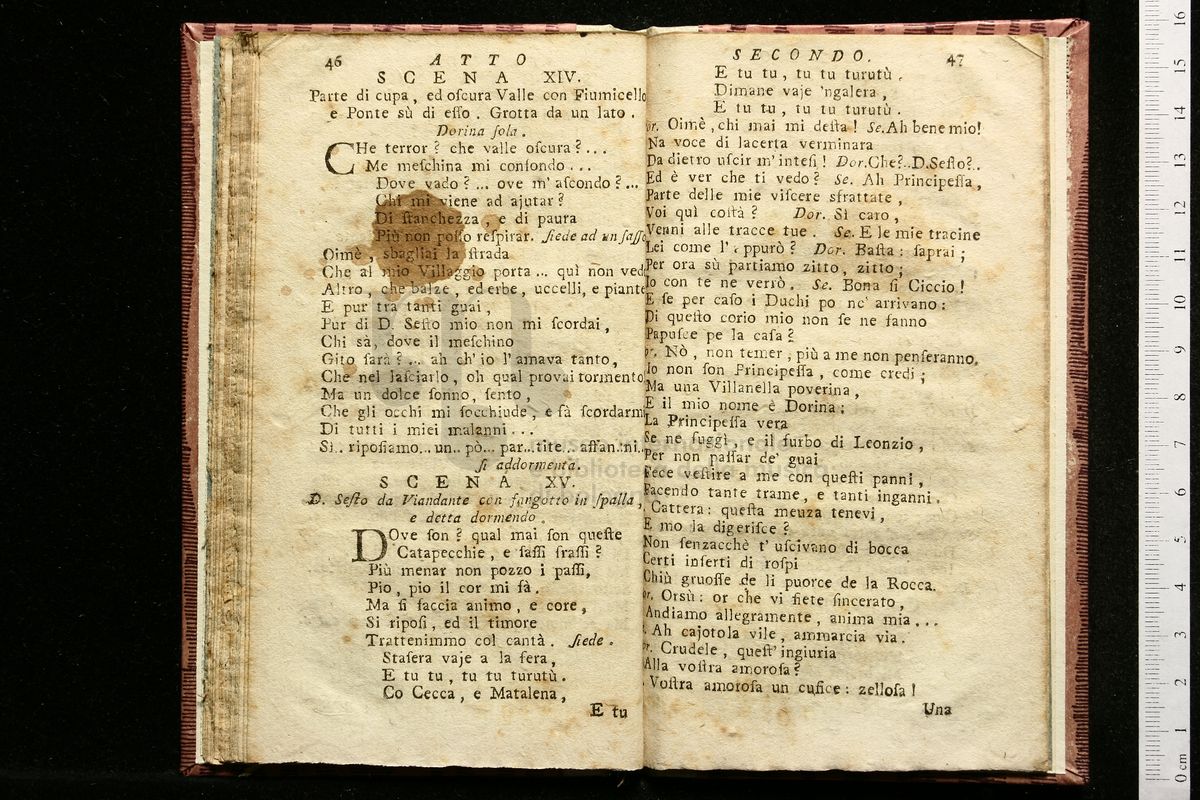 46 ATTO
SCENA XIV.
Parte di cupa, ed oſcura Valle con Fiumicello
e Ponte sù di eſſo. Grotta da un lato.
Dorina ſola.
CHe terror? che valle oſcura?...
Me meſchina mi confondo...
Dove vado?... ove m' aſcondo?...
Chi mi viene ad ajutar?
Di ſtanchezza, e di paura
Più non poſſo reſpirar. ſiede ad un ſaſſo
Oimè, sbagliai la ſtrada
Che al mio Villaggio porta... quì non ved
Altro, che balze, ed erbe, uccelli, e piante
E pur tra tanti guai,
Pur di D. Seſto mio non mi ſcordai,
Chi sà, dove il meſchino
Gito ſarà?... ah ch' io l' amava tanto,
Che nel laſciarlo, oh qual provai tormento
Ma un dolce ſonno, ſento,
Che gli occhi mi ſocchiude, e fà ſcordarm
Di tutti i miei malanni...
Sì.. ripoſiamo... un.. pò... par...tite... affan..ni..
ſi addormenta.
SCENA XV.
D. Seſto da Viandante con fangotto in ſpalla,
e detta dormendo.
DOve ſon? qual mai ſon queſte
Catapecchie, e ſaſſi fraſſi?
Più menar non pozzo i paſſi,
Pio, pio il cor mi fà.
Ma ſi faccia animo, e core,
Si ripoſi, ed il timore
Trattenimmo col cantà. ſiede.
Staſera vaje a la fera,
E tu tu, tu tu turutù.
Co Cecca, e Matalena,
E tu
SECONDO. 47
E tu tu, tu tu turutù.
Dimane vaje 'ngalera,
E tu tu, tu tu turutù.
or. Oimè, chi mai mi deſta! Se. Ah bene mio!
Na voce di lacerta verminara
Da dietro uſcir m' inteſi! Dor. Che?.. D. Seſto?..
Ed è ver che ti vedo? Se. Ah Principeſſa,
Parte delle mie viſcere sfrattate,
Voi quì coſtà? Dor. Sì caro,
Venni alle tracce tue. Se. E le mie tracine
Lei come l' appurò? Dor. Baſta: ſaprai;
Per ora sù partiamo zitto, zitto;
Io con te ne verrò. Se. Bona ſi Ciccio!
E ſe per caſo i Duchi po nc' arrivano:
Di queſto corio mio non ſe ne fanno
Papuſce pe la caſa?
or. Nò, non temer, più a me non penſeranno.
Io non ſon Principeſſa, come credi;
Ma una Villanella poverina,
E il mio nome è Dorina;
La Principeſſa vera
Se ne fuggì, e il furbo di Leonzio,
Per non paſſar de' guai
Fece veſtire a me con queſti panni,
Facendo tante trame, e tanti inganni.
Cattera: queſta meuza tenevi,
E mo la digeriſce?
Non ſenzacchè t' uſcivano di bocca
Certi inſerti di roſpi
Chiù gruoſſe de li puorce de la Rocca.
or. Orsù: or che vi ſiete ſincerato,
Andiamo allegramente, anima mia...
Ah cajotola vile, ammarcia via.
or. Crudele, queſt' ingiuria
Alla voſtra amoroſa?
Voſtra amoroſa un cuſice: zelloſa!
Una